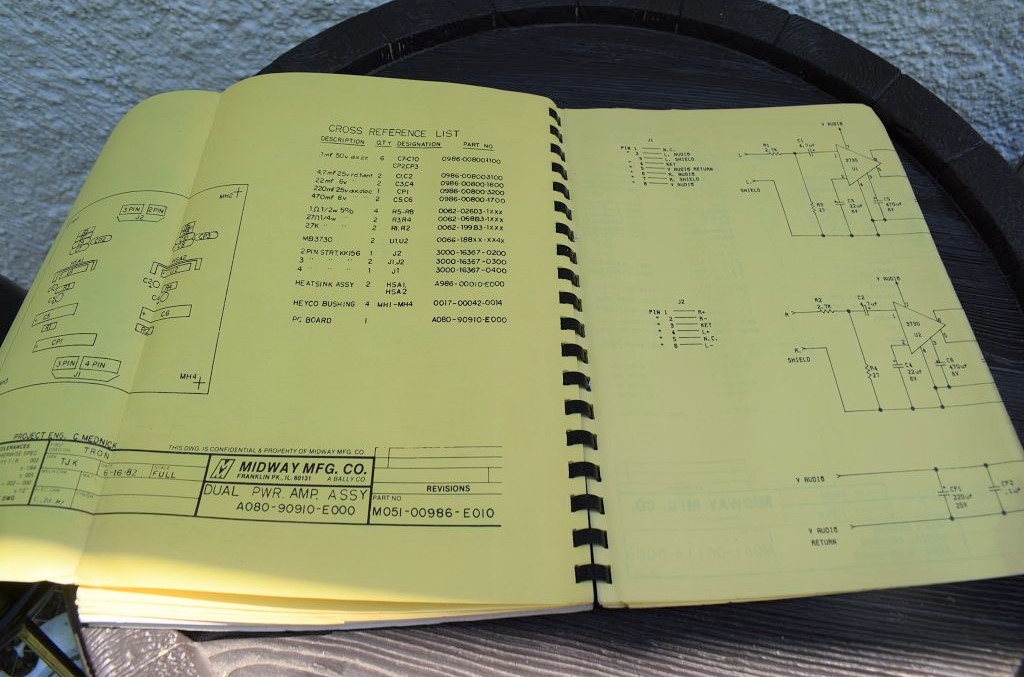 CROSS REFERENCE LIST
DESCRIPTION QTY DESIGNATION PART NO
.1mf 50v 6 C7-C10 0986-00800-1100
CP2,CP3
4.7mf 25v radial 2 C1,C2 0986-00800-3100
22mf 6v 2 C3,C4 0986-00800-1800
220mf 25v 1 CP1 0986-00800-3200
470mf 6v 2 C5,C6 0986-00800-1700
1Ω 1/2w 5% 4 R5-R8 0062-026D3-1XXX
27Ω 1/4w 2 R3,R4 0062-068B3-1XXX
27K " " 2 R1,R2 0062-199B3-1XXX
MB3730 2 U1,U2 0066-188XX-XX4X
2 PIN STRT. KK156 1 J2 3000-16367-0200
3 " " " 2 J1,J2 3000-16367-0300
4 " " " 1 J1 3000-16367-0400
HEATSINK ASSY 2 HSA1, A986-00010-E000
HSA2
HEYCO BUSHING 4 MH1-MH4 0017-00042-0014
PC BOARD 1 A080-90910-E000
MH2
3 PIN 2 PIN
J2
CP3
C5
C6
R2
CP1
3 PIN 4 PIN
J1
MH4
PROJECT ENG. C. MEDNICK
TRON
TJK
6-16-82
SCALE
FULL
THIS DWG. IS CONFIDENTIAL & PROPERTY OF MIDWAY MFG. CO.
MIDWAY MFG. CO.
FRANKLIN PK., IL. 60131 A BALLY CO.
DUAL PWR. AMP. ASSY
A080-90910-E000
REVISIONS
PART NO
M051-00986-E010
J1
PIN 1 N.C.
2 L. AUDIO
3 L. SHIELD
4 KEY
5 V AUDIO RETURN
6 R. AUDIO
7 R. SHIELD
8 V AUDIO
J2
PIN 1 R+
2 R-
3 KEY
4 L+
5 N.C.
6 L-
V AUDIO
R1
2.7K
C1
4.7uF
3730
U1
L
SHIELD
R3
27
C3
22uF
6V
C5
470uF
6V
V AUDIO
R2
2.7K
C2
3730
U2
R
R.
SHIELD
R4
27
C4
22uF
6V
C6
470uF
6V
V AUDIO
CP1
220uF
25V
CP2
.1uF
V AUDIO
RETURN